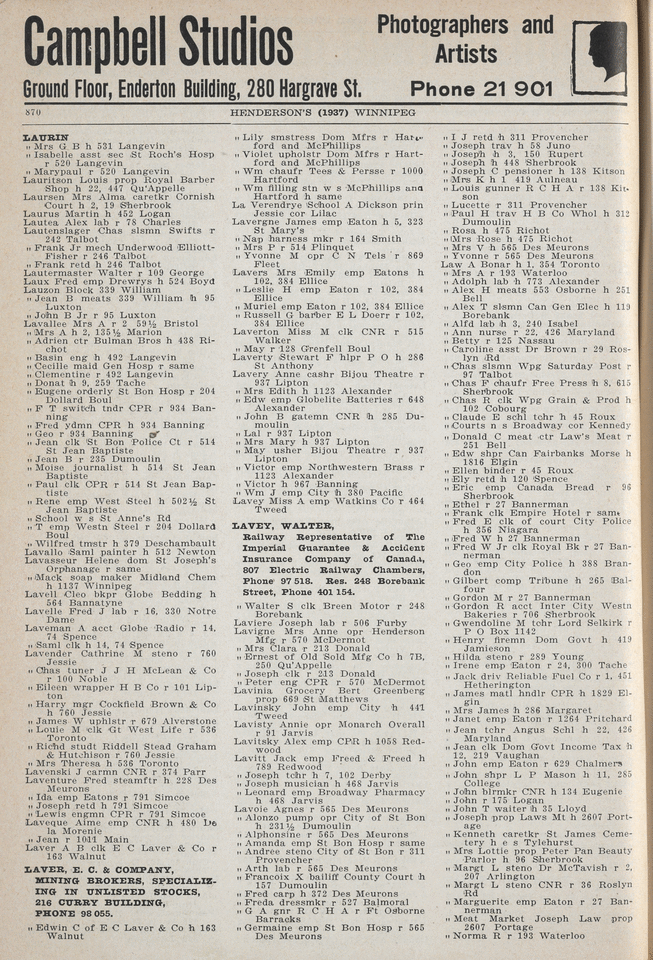 Campbell Studios
Photographers and
Artists
Ground Floor, Enderton Building, 280 Hargrave St.
Phone 21 901
870
HENDERSON'S (1937) WINNIPEG
LAURIN
" Mrs G B h 531 Langevin
" Isabelle asst sec St Roch's Hosp
r 520 Langevin
" Marypaul r 520 Langevin
Lauritson Louis prop Royal Barber
Shop h 22, 447 Qu'Appelle
Laursen Mrs Alma caretkr Cornish
Court h 2, 19 Sherbrook
Laurus Martin h 452 Logan
Lautea Alex lab r 78 Charles
Lautenslager Chas slsmn Swifts r
242 Talbot
" Frank Jr mech Underwood Elliott-
Fisher r 246 Talbot
" Frank retd h 246 Talbot
Lautermaster Walter r 109 George
Laux Fred emp Drewrys h 524 Boyd
Lauzon Block 339 William
" Jean B meats 339 William h 95
Luxton
" John B Jr r 95 Luxton
Lavallee Mrs A r 2 59½ Bristol
" Mrs A h 2, 135½ Marion
" Adrien ctr Bulman Bros h 438 Ri-
chot
" Basin eng h 492 Langevin
" Cecille maid Gen Hosp r same
" Clementine r 492 Langevin
" Donat h 9, 259 Tache
" Eugene orderly St Bon Hosp r 204
Dollard Boul
" F T switch tndr CPR r 934 Ban-
ning
" Fred ydmn CPR h 934 Banning
" Geo r 934 Banning
" Jean clk St Bon Police Ct r 514
St Jean Baptiste
" Jean B r 235 Dumoulin
" Moise journalist h 514 St Jean
Baptiste
" Paul clk CPR r 514 St Jean Bap-
tiste
" Rene emp West Steel h 502½ St
Jean Baptiste
" School w s St Anne's Rd
" T emp Westn Steel r 204 Dollard
Boul
" Wilfred tmstr h 379 Deschambault
Lavallo Saml painter h 512 Newton
Lavasseur Helene dom St Joseph's
Orphanage r same
" Mack soap maker Midland Chem
h 1137 Winnipeg
Lavell Cleo bkpr Globe Bedding h
564 Bannatyne
Lavelle Fred J lab r 16, 330 Notre
Dame
Laveman A acct Globe Radio r 14,
74 Spence
" Saml clk h 14, 74 Spence
Lavender Cathrine M steno r 760
Jessie
" Chas tuner J J H McLean & Co
r 100 Noble
" Eileen wrapper H B Co r 101 Lip-
ton
" Harry mgr Cockfield Brown & Co
h 760 Jessie
" James W uphlstr r 679 Alverstone
" Louie M clk Gt West Life r 536
Toronto
" Richd studt Riddell Stead Graham
& Hutchison r 760 Jessie
" Mrs Theresa h 536 Toronto
Lavenski J carmn CNR r 374 Parr
Laventure Fred steamftr h 228 Des
Meurons
" Ida emp Eatons r 791 Simcoe
" Joseph retd h 791 Simcoe
" Lewis engmn CPR r 791 Simcoe
Laveque Aime emp CNR h 480 De
la Morenie
" Jean r 1041 Main
Laver A B clk E C Laver & Co r
163 Walnut
LAVER, E. C. & COMPANY,
MINING BROKERS, SPECIALIZ-
ING IN UNLISTED STOCKS,
216 CURRY BUILDING,
PHONE 98 055.
" Edwin C of E C Laver & Co h 163
Walnut
" Lily smstress Dom Mfrs r Hart-
ford and McPhillips
" Violet upholstr Dom Mfrs r Hart-
ford and McPhillips
" Wm chaufr Tees & Persse r 1000
Hartford
" Wm filling stn w s McPhillips and
Hartford h same
La Verendrye School A Dickson prin
Jessie cor Lilac
Lavergne James emp Eaton h 5, 323
St Mary's
" Nap harness mkr r 164 Smith
" Mrs P r 514 Plinquet
" Yvonne M opr C N Tels r 869
Fleet
Lavers Mrs Emily emp Eatons h
102, 384 Ellice
" Leslie H emp Eaton r 102, 384
Ellice
" Muriel emp Eaton r 102, 384 Ellice
" Russell G barber E L Doerr r 102,
384 Ellice
Laverton Miss M clk CNR r 515
Walker
" May r 128 Grenfell Boul
Laverty Stewart F hlpr P O h 286
St Anthony
Lavery Anne cashr Bijou Theatre r
937 Lipton
" Mrs Edith h 1123 Alexander
" Edw emp Globelite Batteries r 648
Alexander
" John B gatemn CNR h 285 Du-
moulin
" Lal r 937 Lipton
" Mrs Mary h 937 Lipton
" May usher Bijou Theatre r 937
Lipton
" Victor emp Northwestern Brass r
1123 Alexander
" Victor h 967 Banning
" Wm J emp City h 380 Pacific
Lavey Miss A emp Watkins Co r 464
Tweed
LAVEY, WALTER,
Railway Representative of The
Imperial Guarantee & Accident
Insurance Company of Canada,
807 Electric Railway Chambers,
Phone 97 518. Res. 248 Borebank
Street, Phone 401 154.
" Walter S clk Breen Motor r 248
Borebank
Laviere Joseph lab r 506 Furby
Lavigne Mrs Anne opr Henderson
Mfg r 570 McDermot
" Mrs Clara r 213 Donald
" Ernest of Old Sold Mfg Co h 7B,
250 Qu'Appelle
" Joseph clk r 213 Donald
" Peter eng CPR r 570 McDermot
Lavinia Grocery Bert Greenberg
prop 669 St Matthews
Lavinsky John emp City h 441
Tweed
Lavisty Annie opr Monarch Overall
r 91 Jarvis
Lavitsky Alex emp CPR h 1058 Red-
wood
Lavitt Jack emp Freed & Freed h
789 Redwood
" Joseph tchr h 7, 102 Derby
" Joseph musician h 468 Jarvis
" Leonard emp Broadway Pharmacy
h 468 Jarvis
Lavoie Agnes r 565 Des Meurons
" Alonzo pump opr City of St Bon
h 231½ Dumoulin
" Alphonsine r 565 Des Meurons
" Amanda emp St Bon Hosp r same
" Andree steno City of St Bon r 311
Provencher
" Arth lab r 565 Des Meurons
" Francoix X bailiff County Court h
157 Dumoulin
" Fred carp h 372 Des Meurons
" Freda dressmkr r 527 Balmoral
" G A gnr R C H A r Ft Osborne
Barracks
" Germaine emp St Bon Hosp r 565
Des Meurons
" I J retd h 311 Provencher
" Joseph trav h 58 Juno
" Joseph h 3, 150 Rupert
" Joseph h 448 Sherbrook
" Joseph C pensioner h 138 Kitson
" Mrs K h 1 419 Aulneau
" Louis gunner R C H A r 138 Kit-
son
" Lucette r 311 Provencher
" Paul H trav H B Co Whol h 312
Dumoulin
" Rosa h 475 Richot
" Mrs Rose h 475 Richot
" Mrs V h 565 Des Meurons
" Yvonne r 565 Des Meurons
Law A Bonar h 1, 354 Toronto
" Mrs A r 193 Waterloo
" Adolph lab h 773 Alexander
" Alex H meats 553 Osborne h 251
Bell
" Alex T slsmn Can Gen Elec h 119
Borebank
" Alfd lab h 3, 240 Isabel
" Ann nurse r 22, 426 Maryland
" Betty r 125 Nassau
" Caroline asst Dr Brown r 29 Ros-
lyn Rd
" Chas slsmn Wpg Saturday Post r
97 Talbot
" Chas F chaufr Free Press h 8, 615
Sherbrook
" Chas R clk Wpg Grain & Prod h
102 Cobourg
" Claude E schl tchr h 45 Roux
" Courts n s Broadway cor Kennedy
" Donald C meat ctr Law's Meat r
251 Bell
" Edw shpr Can Fairbanks Morse h
1816 Elgin
" Ellen binder r 45 Roux
" Ely retd h 120 Spence
" Eric emp Canada Bread r 96
Sherbrook
" Ethel r 27 Bannerman
" Frank clk Empire Hotel r same
" Fred E clk of court City Police
h 356 Niagara
" Fred W h 27 Bannerman
" Fred W Jr clk Royal Bk r 27 Ban-
nerman
" Geo emp City Police h 388 Bran-
don
" Gilbert comp Tribune h 265 Bal-
four
" Gordon M r 27 Bannerman
" Gordon R acct Inter City Westn
Bakeries r 706 Sherbrook
" Gwendoline M tchr Lord Selkirk r
P O Box 1142
" Henry firemn Dom Govt h 419
Jamieson
" Hilda steno r 289 Young
" Irene emp Eaton r 24, 300 Tache
" Jack driv Reliable Fuel Co r 1, 451
Hetherington
" James matl hndlr CPR h 1829 El-
gin
" Mrs James h 286 Margaret
" Janet emp Eaton r 1264 Pritchard
" Jean tchr Angus Schl h 22, 426
Maryland
" Jean clk Dom Govt Income Tax h
12, 219 Vaughan
" John emp Eaton r 629 Chalmers
" John shpr L P Mason h 11, 285
College
" John blrmkr CNR h 134 Eugenie
" John r 175 Logan
" John T waiter h 35 Lloyd
" Joseph prop Laws Mt h 2607 Port-
age
" Kenneth caretkr St James Ceme-
tery h e s Tylehurst
" Mrs Lottie prop Peter Pan Beauty
Parlor h 96 Sherbrook
" Margt L steno Dr McTavish r 2,
207 Arlington
" Margt L steno CNR r 36 Roslyn
Rd
" Marguerite emp Eaton r 27 Ban-
nerman
" Meat Market Joseph Law prop
2607 Portage
" Norma R r 193 Waterloo